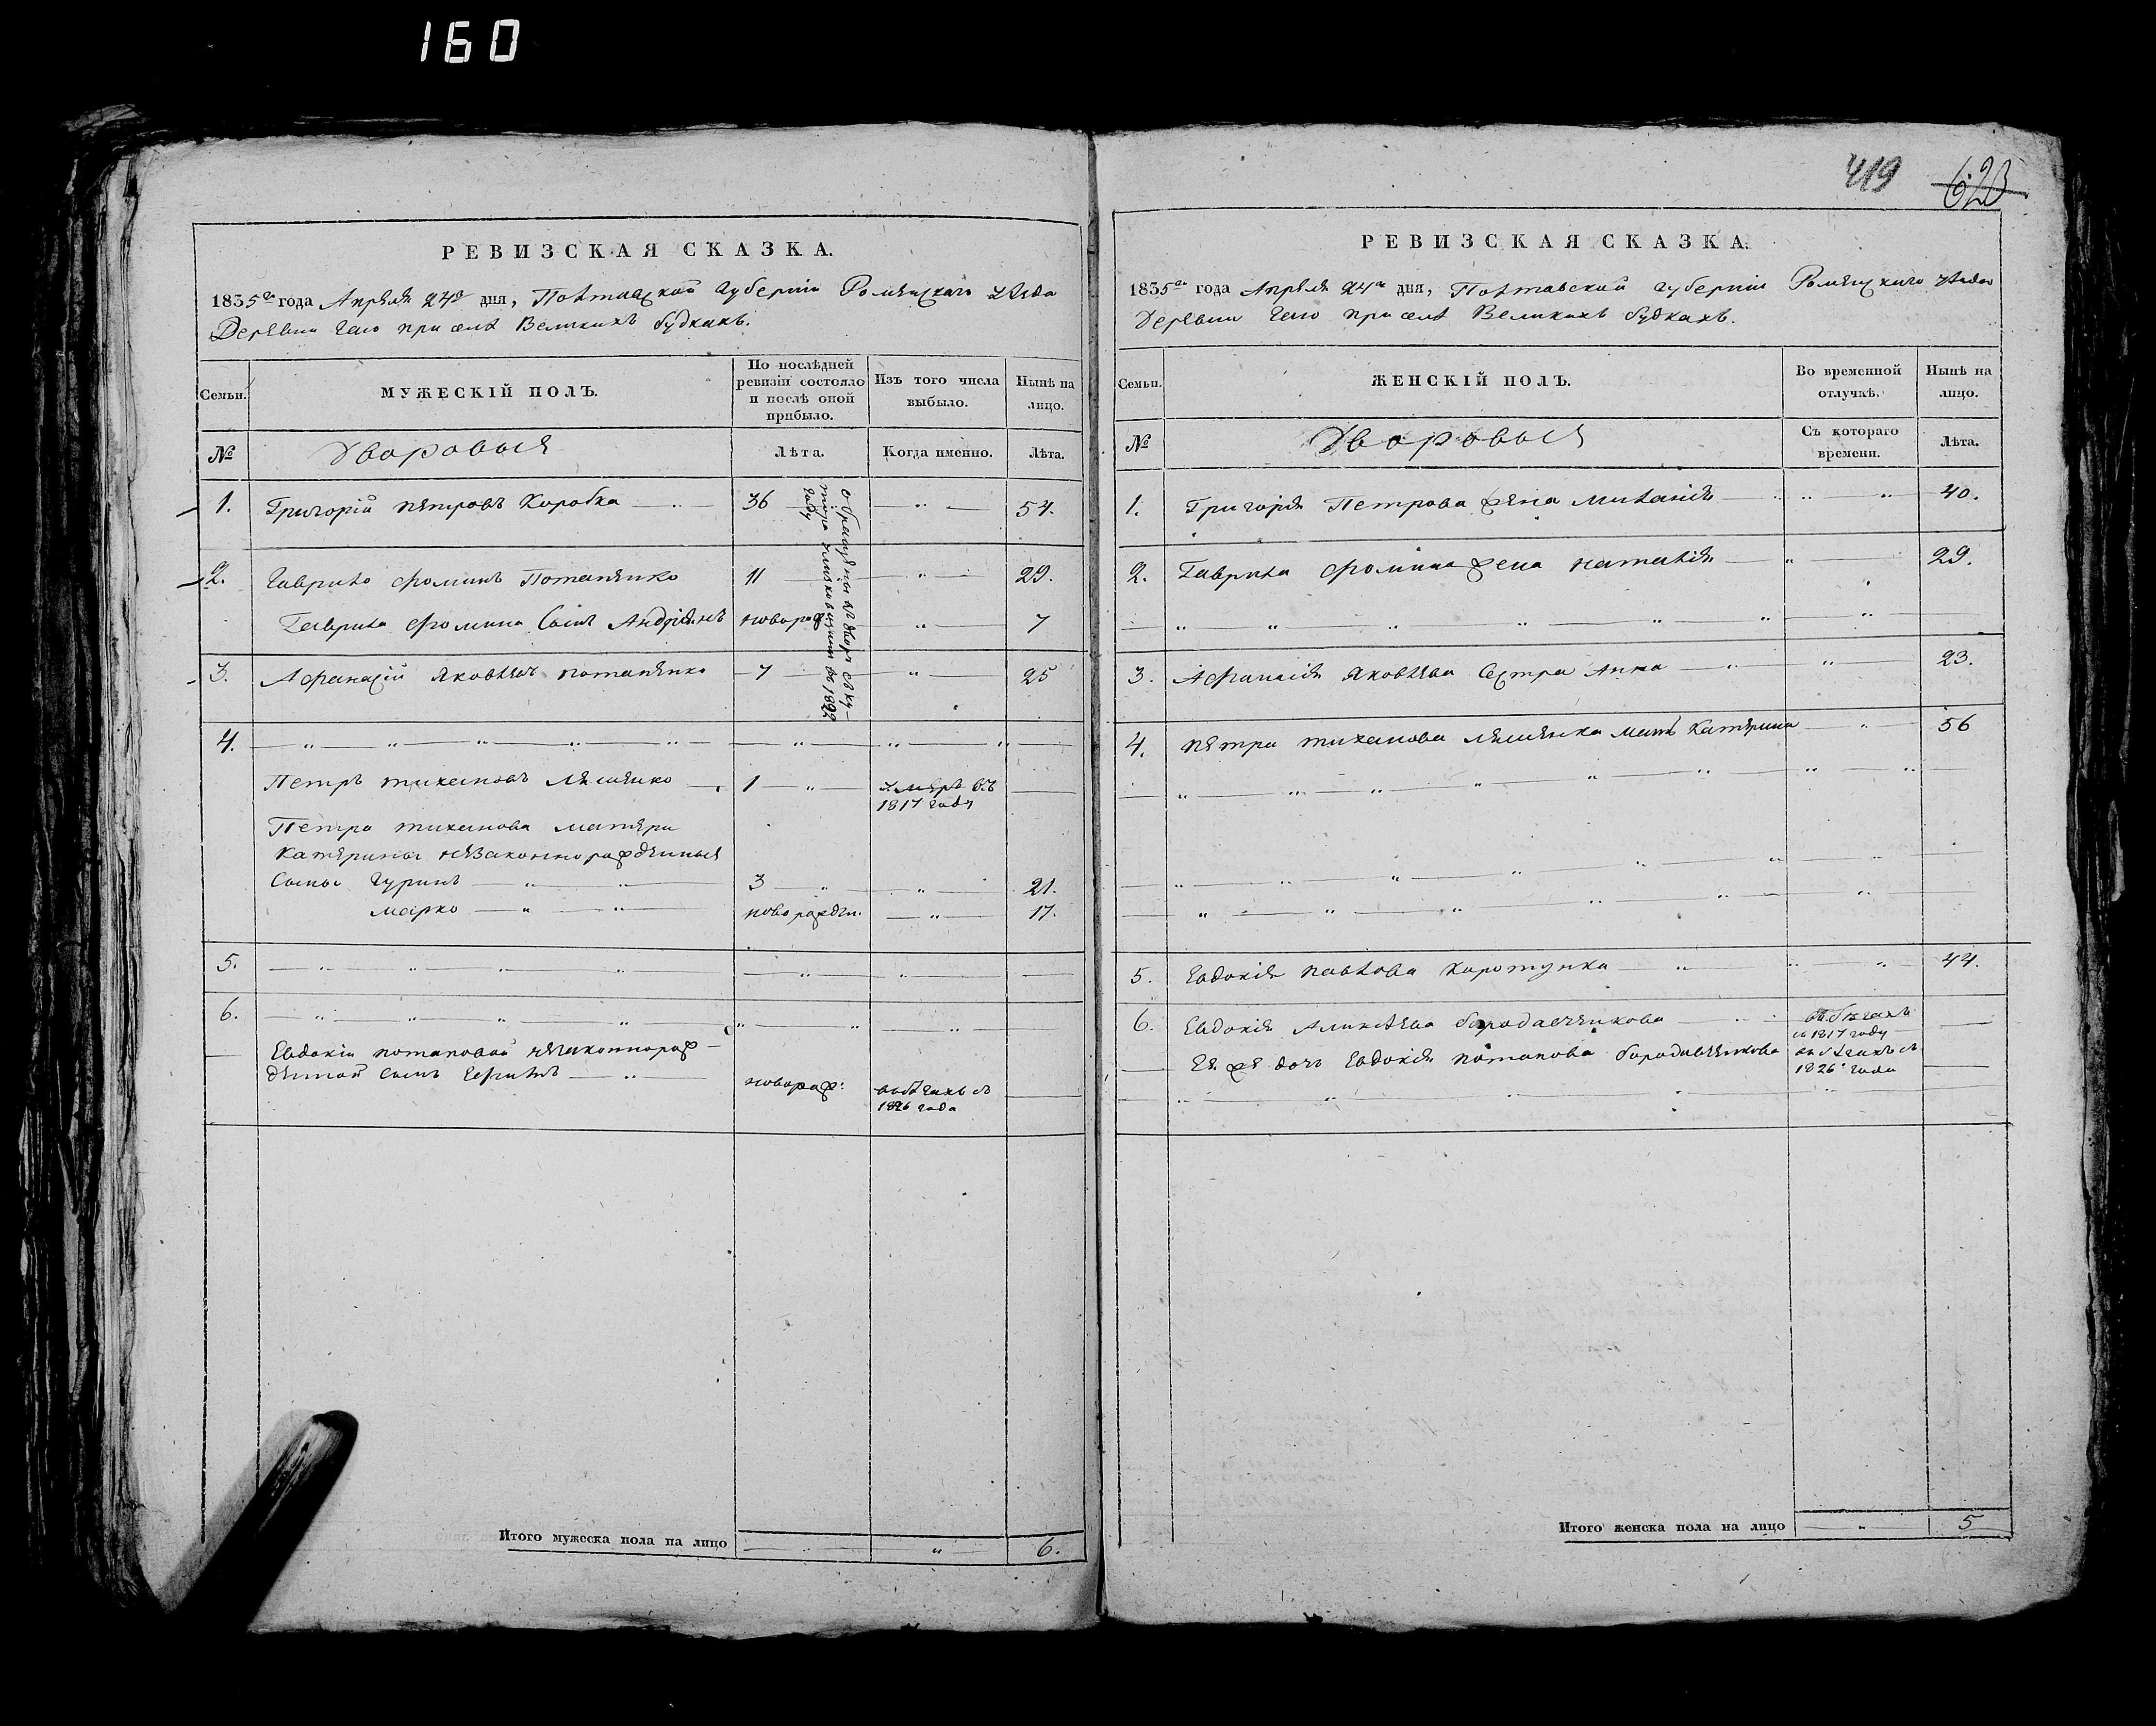 160
РЕВИЗСКАЯ СКАЗКА.
1835го года Апреля 24го дня, Полтавской Губернии Роменскаго уезда
Деревни Гаю при селе Великихъ будкахъ.
Семьи.
МУЖЕСКІЙ ПОЛЪ.
По послѣдней ревизіи состояло и послѣ оной прибыло.
Изъ того числа выбыло.
Нынѣ на лицо.
№
Дворовыя
Лѣта.
Когда именно.
Лѣта.
1. Григорій Петровъ Коробка 36 54.
2. Гаврило Фоминъ Потапенко 11 29.
Гаврила Фомина Сынъ Андріянъ новорож 7
3. Афанасій Яковлевъ Потапенко 7 25
въ 1822 году
4.
Петръ Тихановъ Лешенко 1 умеръ въ
1817 году
Петра Тиханова матери
Катерины незаконнорожденныя
Сыны Гуринъ 3 21.
Марко новорожден. 17.
5.
6.
Евдокіи Потаповой незаконнорож-
денной сынъ новорож: въ бегахъ съ
1826 года
Итого мужеска пола на лицо 6.
419 623
РЕВИЗСКАЯ СКАЗКА.
1835го года Апреля 24го дня, Полтавской Губерніи Роменскаго уезда
Деревни Гаю при селе Великихъ будкахъ.
Семьи.
ЖЕНСКІЙ ПОЛЪ.
Во временной отлучкѣ.
Нынѣ на лицо.
№
Дворовыя
Съ котораго времени.
Лѣта.
1. Григорія Петрова жена Миланія 40.
2. Гаврила Фомина жена Наталія 29.
3. Афанасія Яковлева Сестра Анна 23.
4. Петра Тиханова Лешенка мать Катерина 56
5. Евдокія Павлова Коротунка 44.
6. Евдокія Алимпева Бородавченкова въ бегахъ
съ 1817 году
Ея же дочь Евдокія Потапова Бородавченкова въ бегахъ съ
1826 года
Итого женска пола на лицо 5